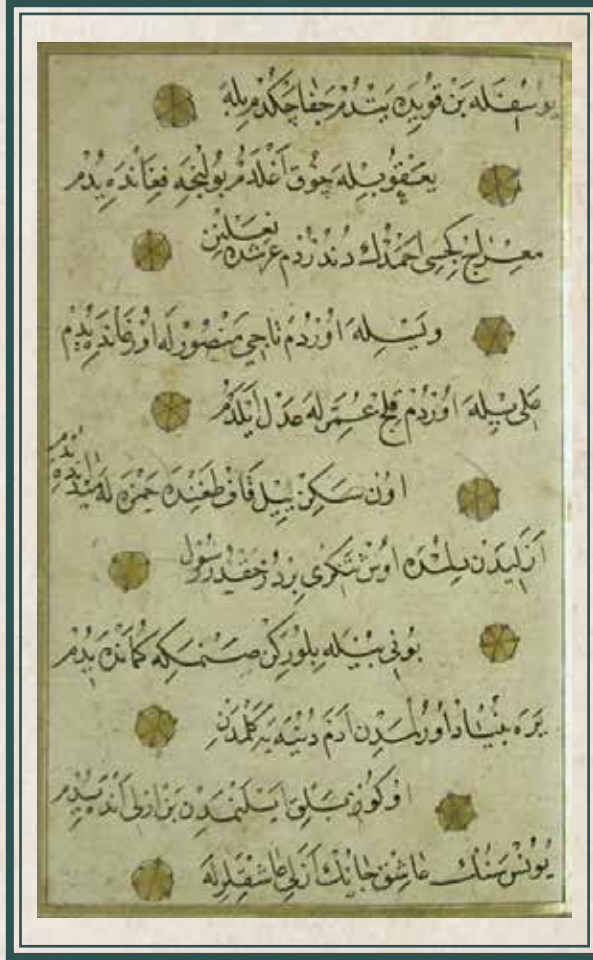 يوسفله بن قويده يتدم جفا چكدم بله
يعقوبيله چوق اغلدم بولنجه فغانده يدم
معراج كجسى احمدك دندردم عرشده نعلينن
ويسيله اوردم تاجى منصورله اورغانده يدم
على بيله اوردم قلج عمرله عدل ايلدم
اون سكز ييل قاف طغنده حمزه له ميدانده يدم
ازليدن بلمده اوش تكرى بردر حقدر رسول
بونى بيله بلوركن صنمكه كمانده يدم
يره بنياد اورلمدن ادم دنيه يه كلمدن
اوكوز بلق ايسلنمدن بن ازلى انده يدم
يونس سنك عاشق جانك ازلى عاشقلرله